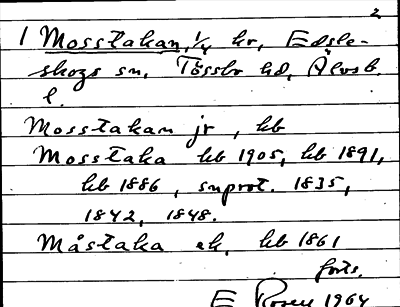 2
1 Mosstakan, 1/4 kr, Edsle-
skogs sn, Tössbo hd, Älvsb.
l.
Mosstakan jr, kb
Mosstaka kb 1905, kb 1891,
kb 1886, snprot. 1835,
1842, 1848.
Måstaka ek, kb 1861
forts.
E Rosell 1964